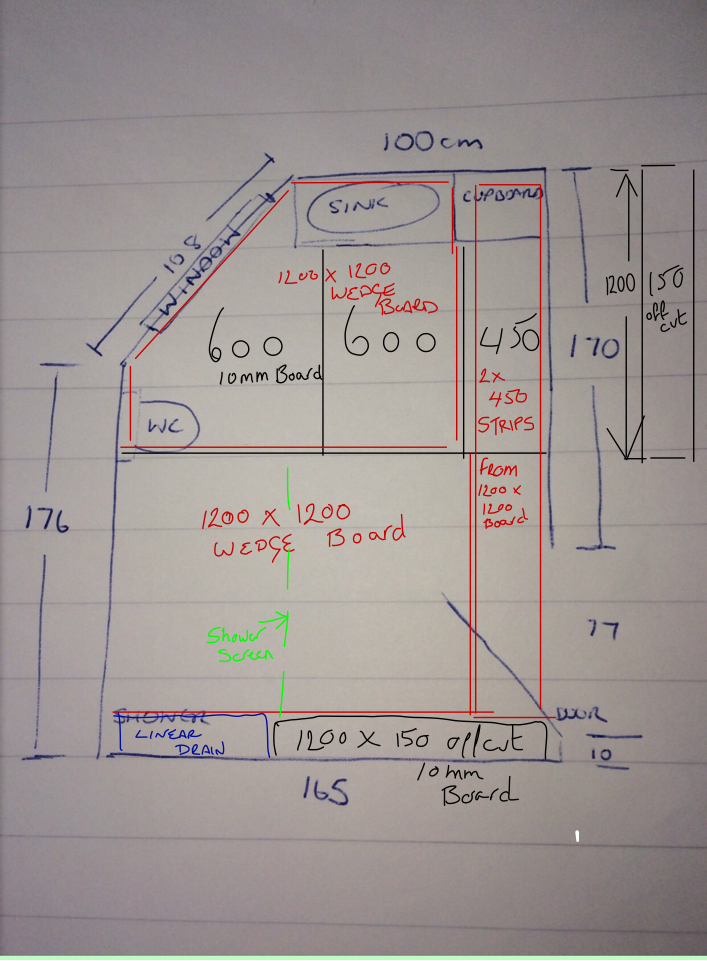 100cm
108
WINDOW
SINK
CUPBOARD
1200 X 1200
WEDGE
BOARD
600
600
450
10mm Board
1200
150
off
cut
170
WC
2x
450
STRIPS
FROM
1200 x
1200
Board
176
1200 X 1200
WEDGE Board
Shower
Screen
77
SHOWER
LINEAR
DRAIN
1200 X 150 offcut
DOOR
10
10mm
Board
165